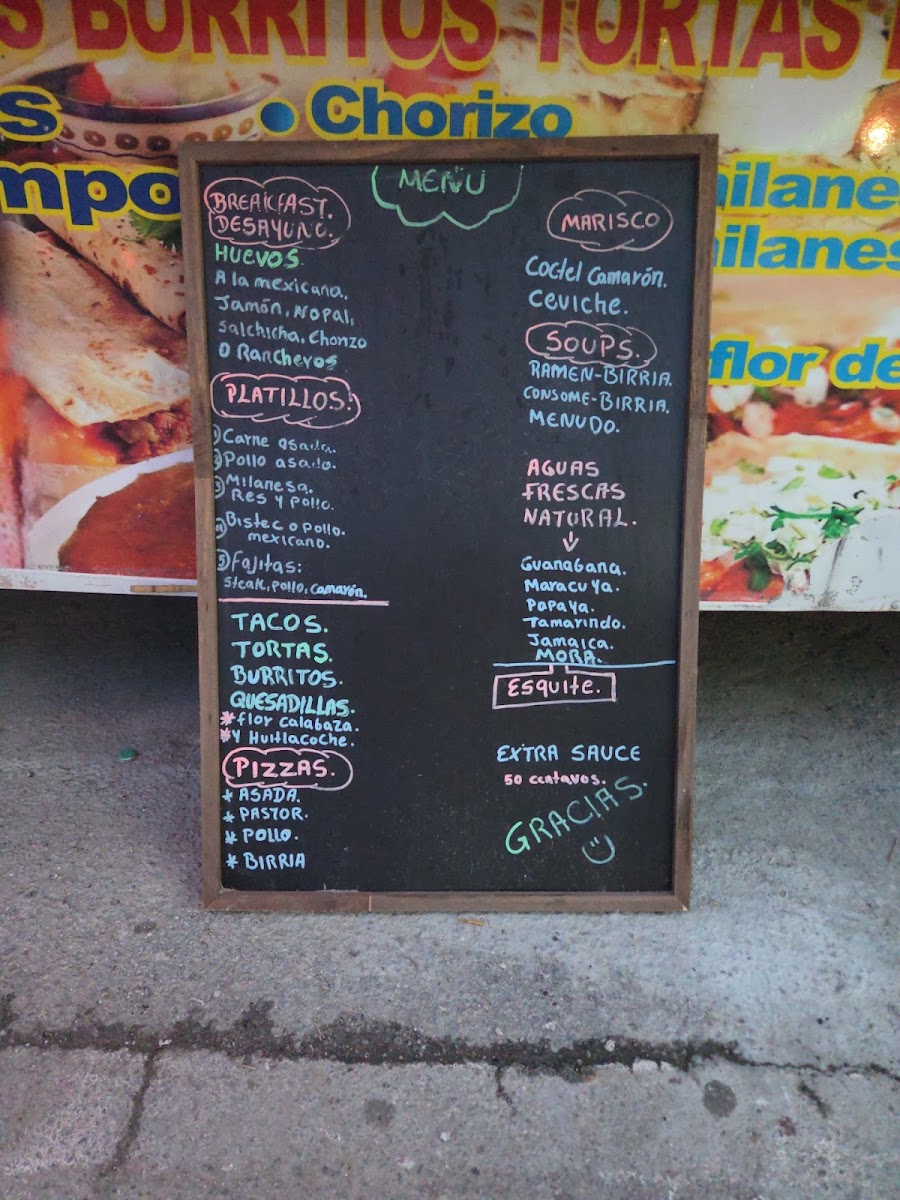 BURRITOS TORTAS
• Chorizo
MENU
BREAKFAST.
DESAYUNO.
HUEVOS.
A la mexicana,
Jamón, Nopal,
Salchicha, Chorizo
O Rancheros
PLATILLOS.
1) Carne asada.
2) Pollo asado.
3) Milanesa.
Res y pollo.
4) Bistec o pollo.
mexicano.
5) Fajitas:
Steak, pollo, camarón.
TACOS.
TORTAS.
BURRITOS.
QUESADILLAS.
* flor calabaza.
* Y Huitlacoche.
PIZZAS.
* ASADA.
* PASTOR.
* POLLO.
* BIRRIA
MARISCO
Coctel Camarón.
Ceviche.
SOUPS.
RAMEN-BIRRIA.
CONSOME-BIRRIA.
MENUDO.
AGUAS
FRESCAS
NATURAL.
Guanabana.
Maracuya.
Papaya.
Tamarindo.
Jamaica.
MORA.
Esquite.
EXTRA SAUCE
50 centavos.
GRACIAS.
flor de